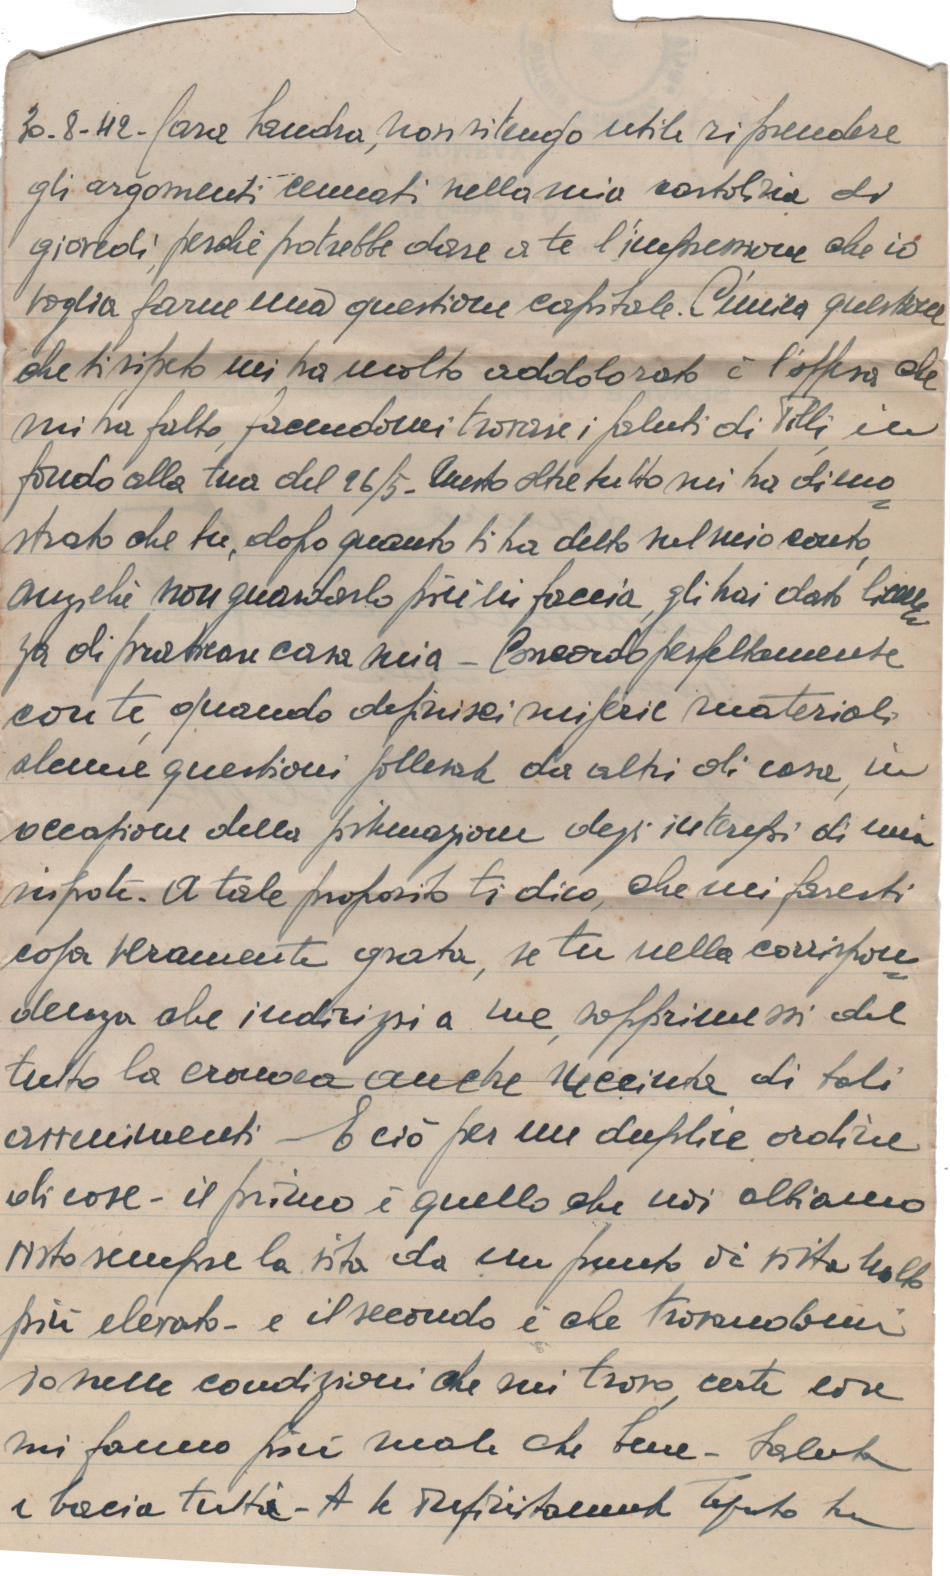 30-8-42- Cara Sandra, non ritengo utile riprendere
gli argomenti cennati nella mia cartolina di
giovedì, perché potrebbe dare a te l'impressione che io
voglia farne una questione capitale. L'unica questione
che ti ripeto mi ha molto addolorato è l'offesa che
mi ha fatto, facendomi trovare i saluti di Tilli, in
fondo alla tua del 26/5- Questo oltretutto mi ha dimo=
strato che tu, dopo quanto ti ha detto sul mio conto,
anzichè non guardarlo più in faccia, gli hai dato licen=
za di praticare casa mia - Concordo perfettamente
con te, quando definisci miserie materiali
alcune questioni sollevate da altri di casa, in
occasione della sistemazione degi interessi di mia
nipote. A tale proposito ti dico, che mi faresti
cosa veramente grata, se tu nella corrispon=
denza che indirizzi a me, sopprimessi del
tutto la cronaca anche succinta di tali
avvenimenti - E ciò per un duplice ordine
di cose - il primo è quello che noi abbiamo
visto sempre la vita da un punto di vista molto
più elevato - e il secondo è che trovandomi
io nelle condizioni che mi trovo, certe cose
mi fanno più male che bene - Saluta
e bacia tutti - A te infinitamente tuo